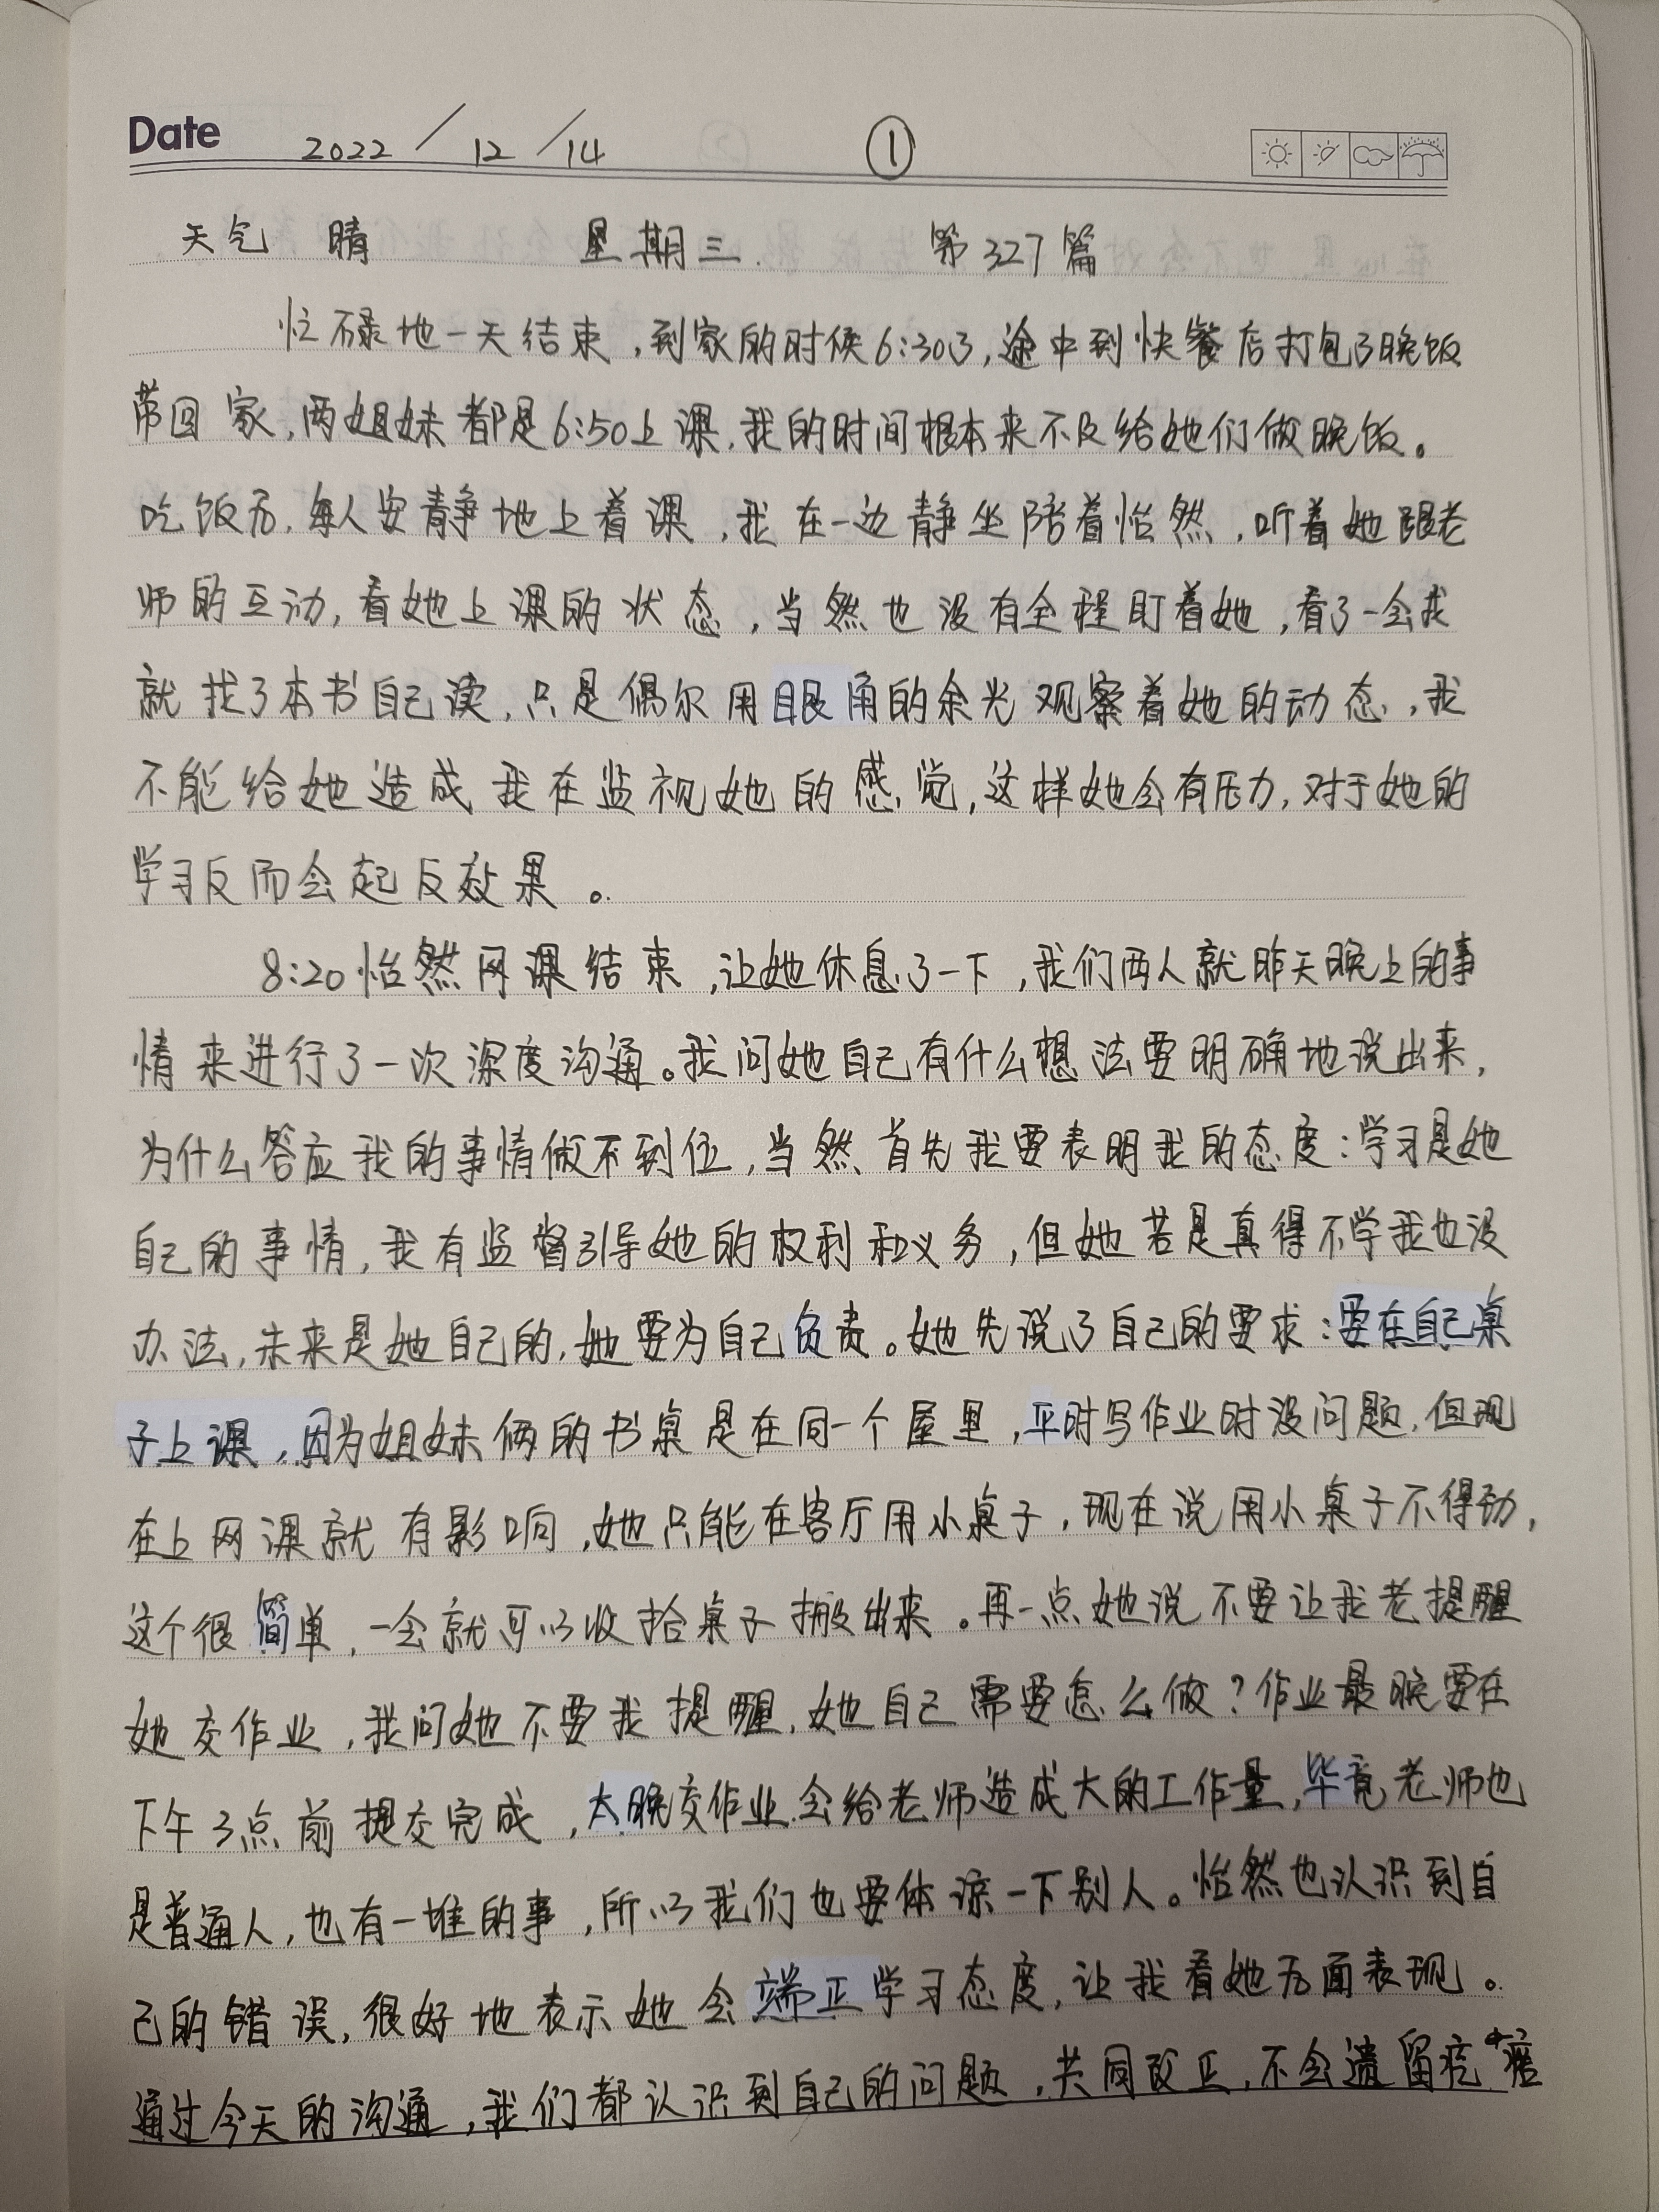 Date 2022/12/14 ①
天气 晴 星期三. 第327篇
忙碌地一天结束,到家的时候6:30了,途中到快餐店打包了晚饭
带回家,两姐妹都是6:50上课,我的时间根本来不及给她们做晚饭。
吃饭后,每人安静地上着课,我在一边静坐陪着怡然,听着她跟老
师的互动,看她上课的状态,当然也没有全程盯着她,看了一会我
就找了本书自己读,只是偶尔用眼角的余光观察着她的动态,我
不能给她造成我在监视她的感觉,这样她会有压力,对于她的
学习反而会起反效果。
8:20怡然网课结束,让她休息了一下,我们两人就昨天晚上的事
情来进行了一次深度沟通。我问她自己有什么想法要明确地说出来,
为什么答应我的事情做不到位,当然首先我要表明我的态度:学习是她
自己的事情,我有监督引导她的权利和义务,但她若是真得不学我也没
办法,未来是她自己的,她要为自己负责。她先说了自己的要求:要在自己桌
子上课,因为姐妹俩的书桌是在同一个屋里,平时写作业时没问题,但现
在上网课就有影响,她只能在客厅用小桌子,现在说用小桌子不得劲,
这个很简单,一会就可以收拾桌子搬出来。再一点她说不要让我老提醒
她交作业,我问她不要我提醒,她自己需要怎么做?作业最晚要在
下午3点前提交完成,太晚交作业会给老师造成大的工作量,毕竟老师也
是普通人,也有一堆的事,所以我们也要体谅一下别人。怡然也认识到自
己的错误,很好地表示她会端正学习态度,让我看她后面表现。
通过今天的沟通,我们都认识到自己的问题,共同改正,不会遗留疙瘩